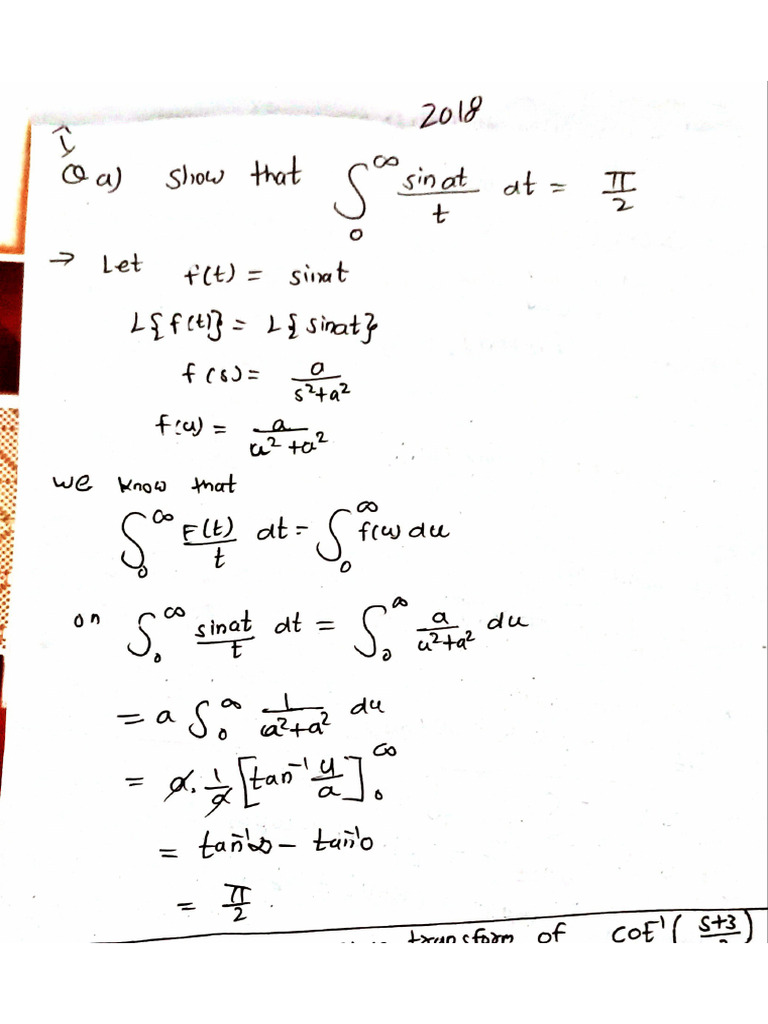 2018
Q a) show that ∫₀^∞ sinat/t dt = π/2
→ Let f(t) = sinat
L{f(t)} = L{sinat}
f(s) = a/(s²+a²)
f(u) = a/(u²+a²)
we know that
∫₀^∞ F(t)/t dt = ∫₀^∞ f(u) du
on ∫₀^∞ sinat/t dt = ∫₀^∞ a/(u²+a²) du
= a ∫₀^∞ 1/(u²+a²) du
= a. 1/a [tan⁻¹ u/a]₀^∞
= tan⁻¹∞ − tan⁻¹0
= π/2
transform of cot⁻¹(s+3